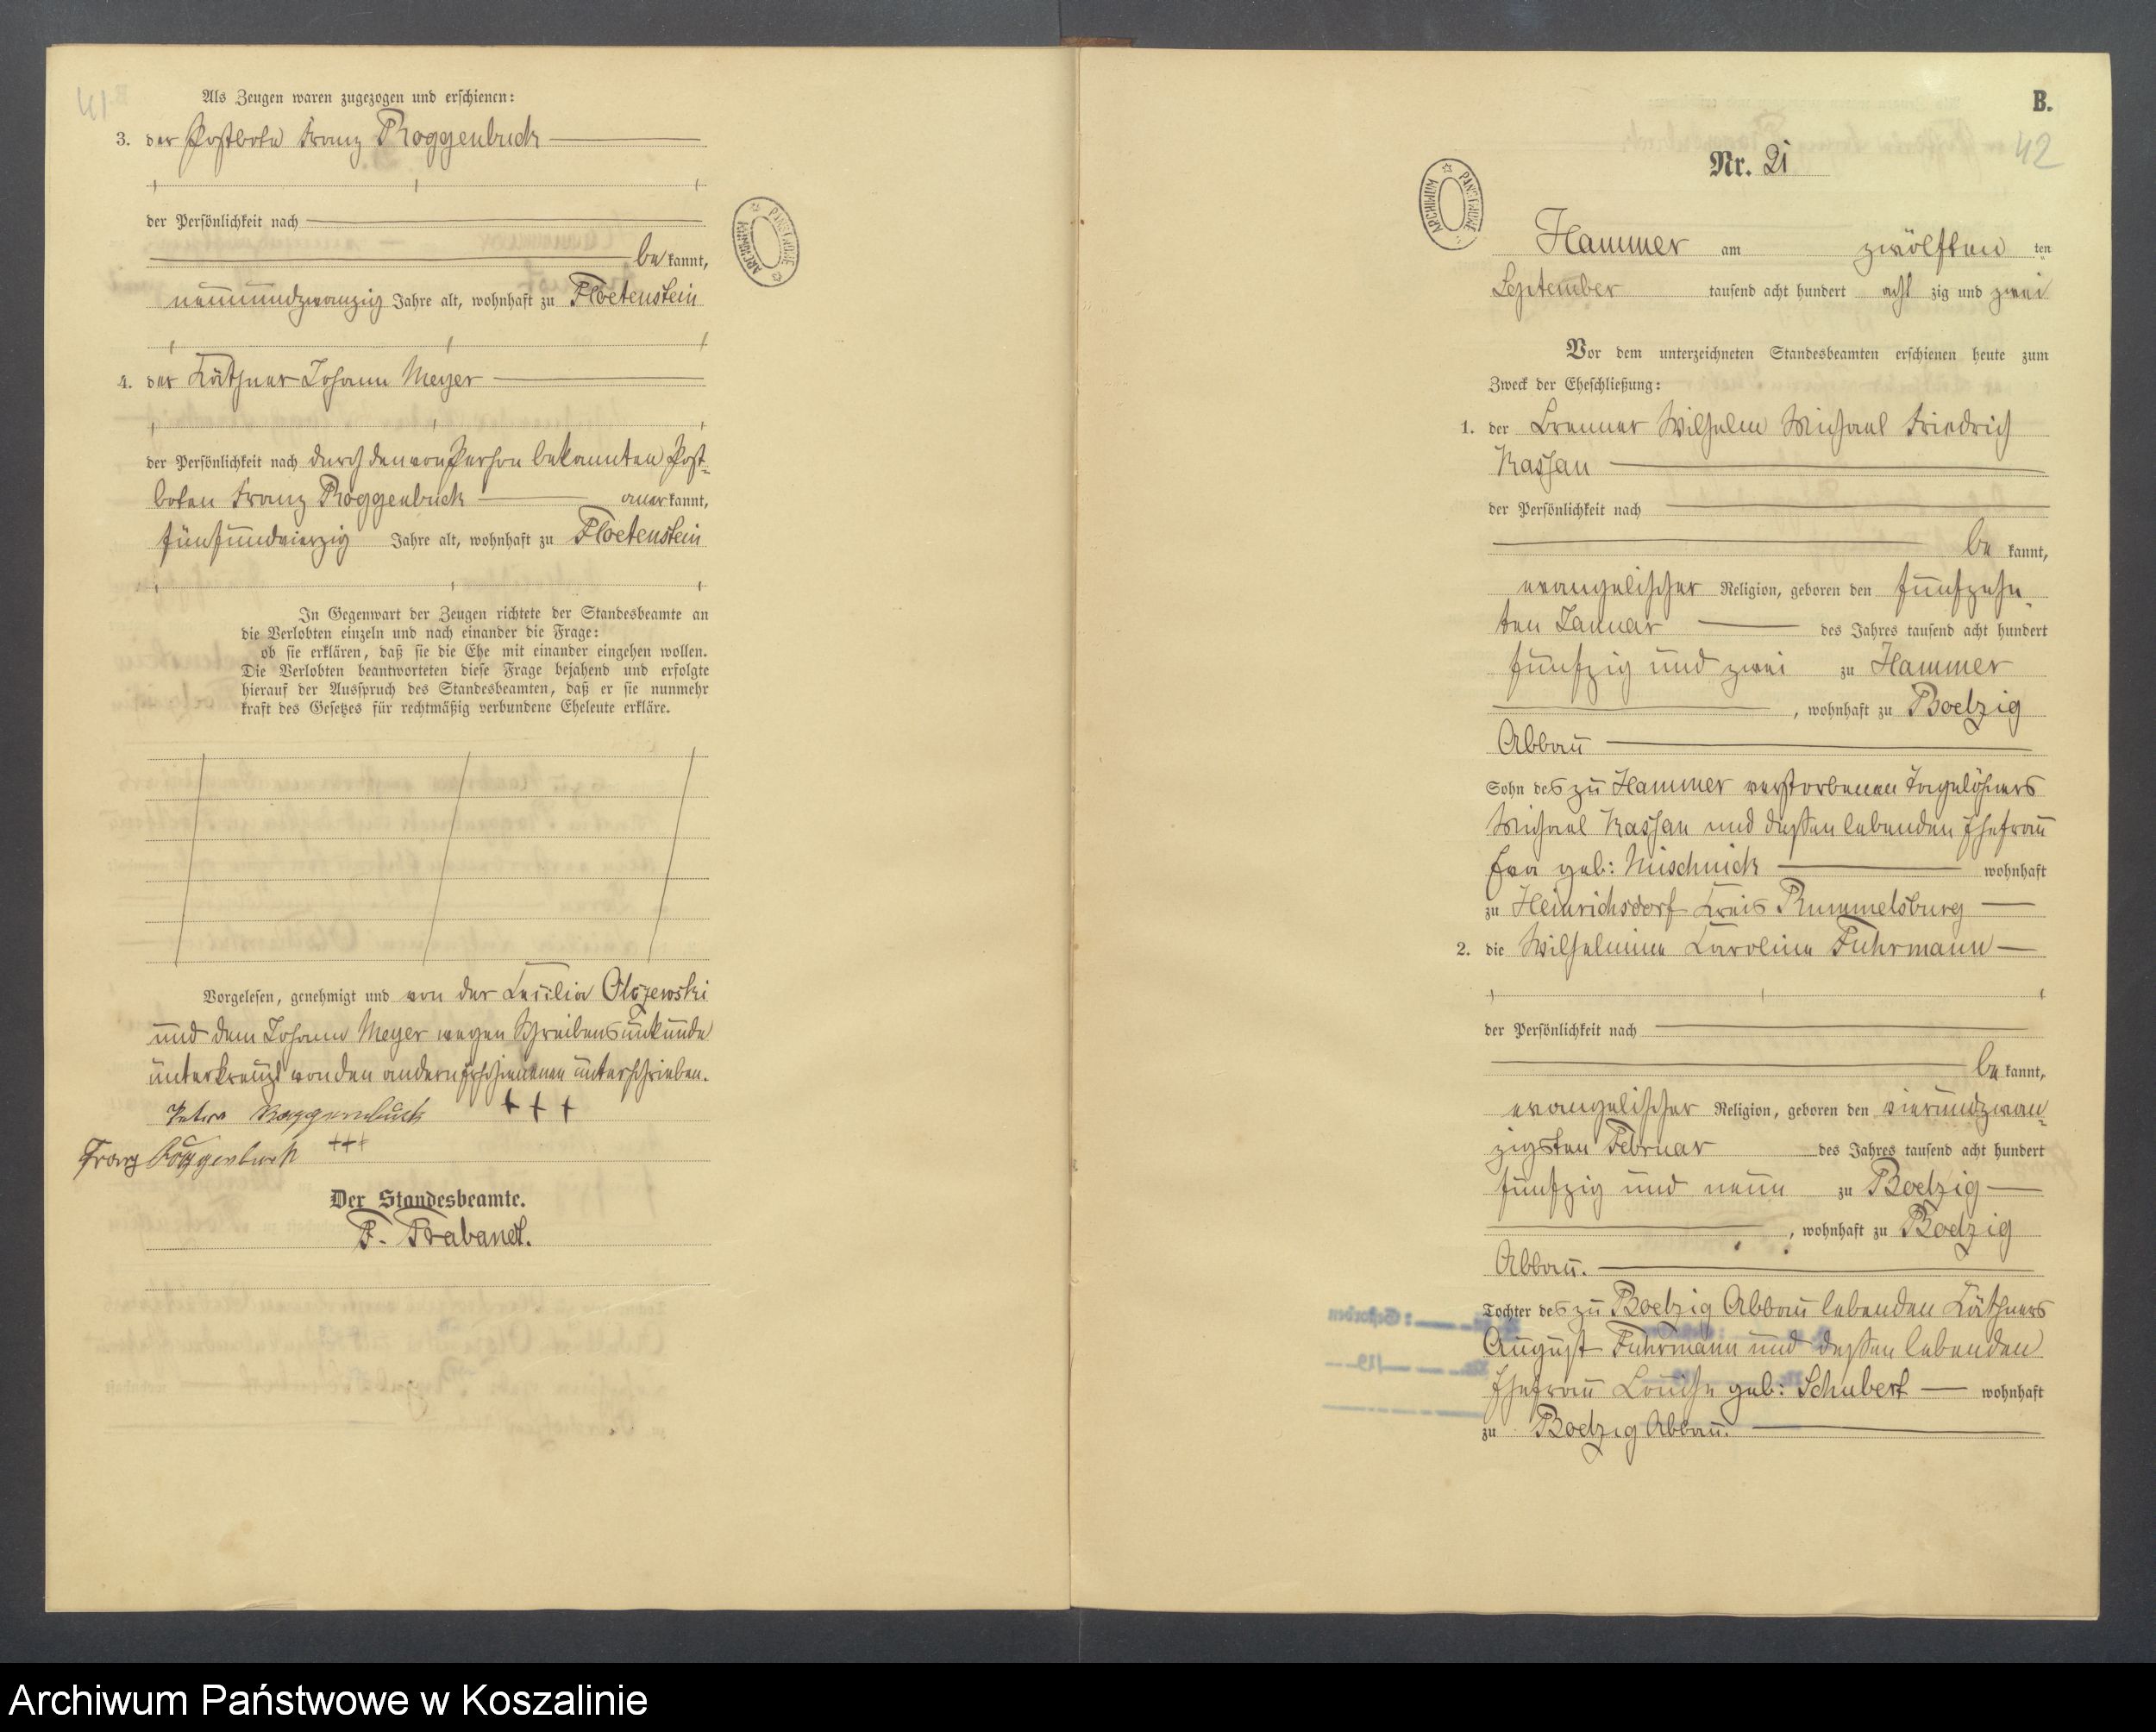 41
Als Zeugen waren zugezogen und erschienen:
3. der Postbote Franz Roggenbuck
der Persönlichkeit nach
be kannt,
neunundzwanzig Jahre alt, wohnhaft zu Floetenstein
4. der Käthner Johann Meyer
der Persönlichkeit nach durch den von Person bekannten Post-
boten Franz Roggenbuck aner kannt,
fünfundvierzig Jahre alt, wohnhaft zu Floetenstein
In Gegenwart der Zeugen richtete der Standesbeamte an
die Verlobten einzeln und nach einander die Frage:
ob sie erklären, daß sie die Ehe mit einander eingehen wollen.
Die Verlobten beantworteten diese Frage bejahend und erfolgte
hierauf der Ausspruch des Standesbeamten, daß er sie nunmehr
kraft des Gesetzes für rechtmäßig verbundene Eheleute erkläre.
Vorgelesen, genehmigt und von der Cecilia Olszewski
und dem Johann Meyer wegen Schreibensunkunde
unterkreuzt von den andern Erschienenen unterschrieben.
Roggenbuck +++
Franz Roggenbuck +++
Der Standesbeamte.
F. Brabandt.
ARCHIWUM PAŃSTWOWE
B.
42
Nr. 21
ARCHIWUM PAŃSTWOWE
Hammer am zwölften ten
September tausend acht hundert acht zig und zwei
Vor dem unterzeichneten Standesbeamten erschienen heute zum
Zweck der Eheschließung:
1. der Brenner Wilhelm Michael Friedrich
Kassan
der Persönlichkeit nach
be kannt,
evangelischer Religion, geboren den fünfzehn-
ten Januar des Jahres tausend acht hundert
fünfzig und zwei zu Hammer
, wohnhaft zu Boelzig
Abbau
Sohn des zu Hammer verstorbenen Tagelöhners
Michael Kassan und dessen lebenden Ehefrau
Eva geb: Mischnick wohnhaft
zu Heinrichsdorf Kreis Rummelsburg
2. die Wilhelmine Caroline Fuhrmann
der Persönlichkeit nach
be kannt,
evangelischer Religion, geboren den vierundzwan-
zigsten Februar des Jahres tausend acht hundert
fünfzig und neun zu Boelzig
, wohnhaft zu Boelzig
Abbau.
Tochter des zu Boelzig Abbau lebenden Käthners
August Fuhrmann und dessen lebenden
Ehefrau Louise geb: Schubert wohnhaft
zu Boelzig Abbau.
Archiwum Państwowe w Koszalinie